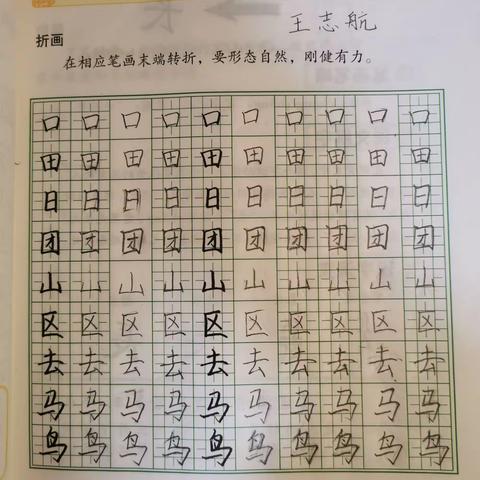 王志航
折画
在相应笔画末端转折，要形态自然，刚健有力。
口口口口口口口口口口
田田田田田田田田田田
日日日日日日日日日日
团团团团团团团团团团
山山山山山山山山山山
区区区区区区区区区区
去去去去去去去去去去
马马马马马马马马马马
鸟鸟鸟鸟鸟鸟鸟鸟鸟鸟